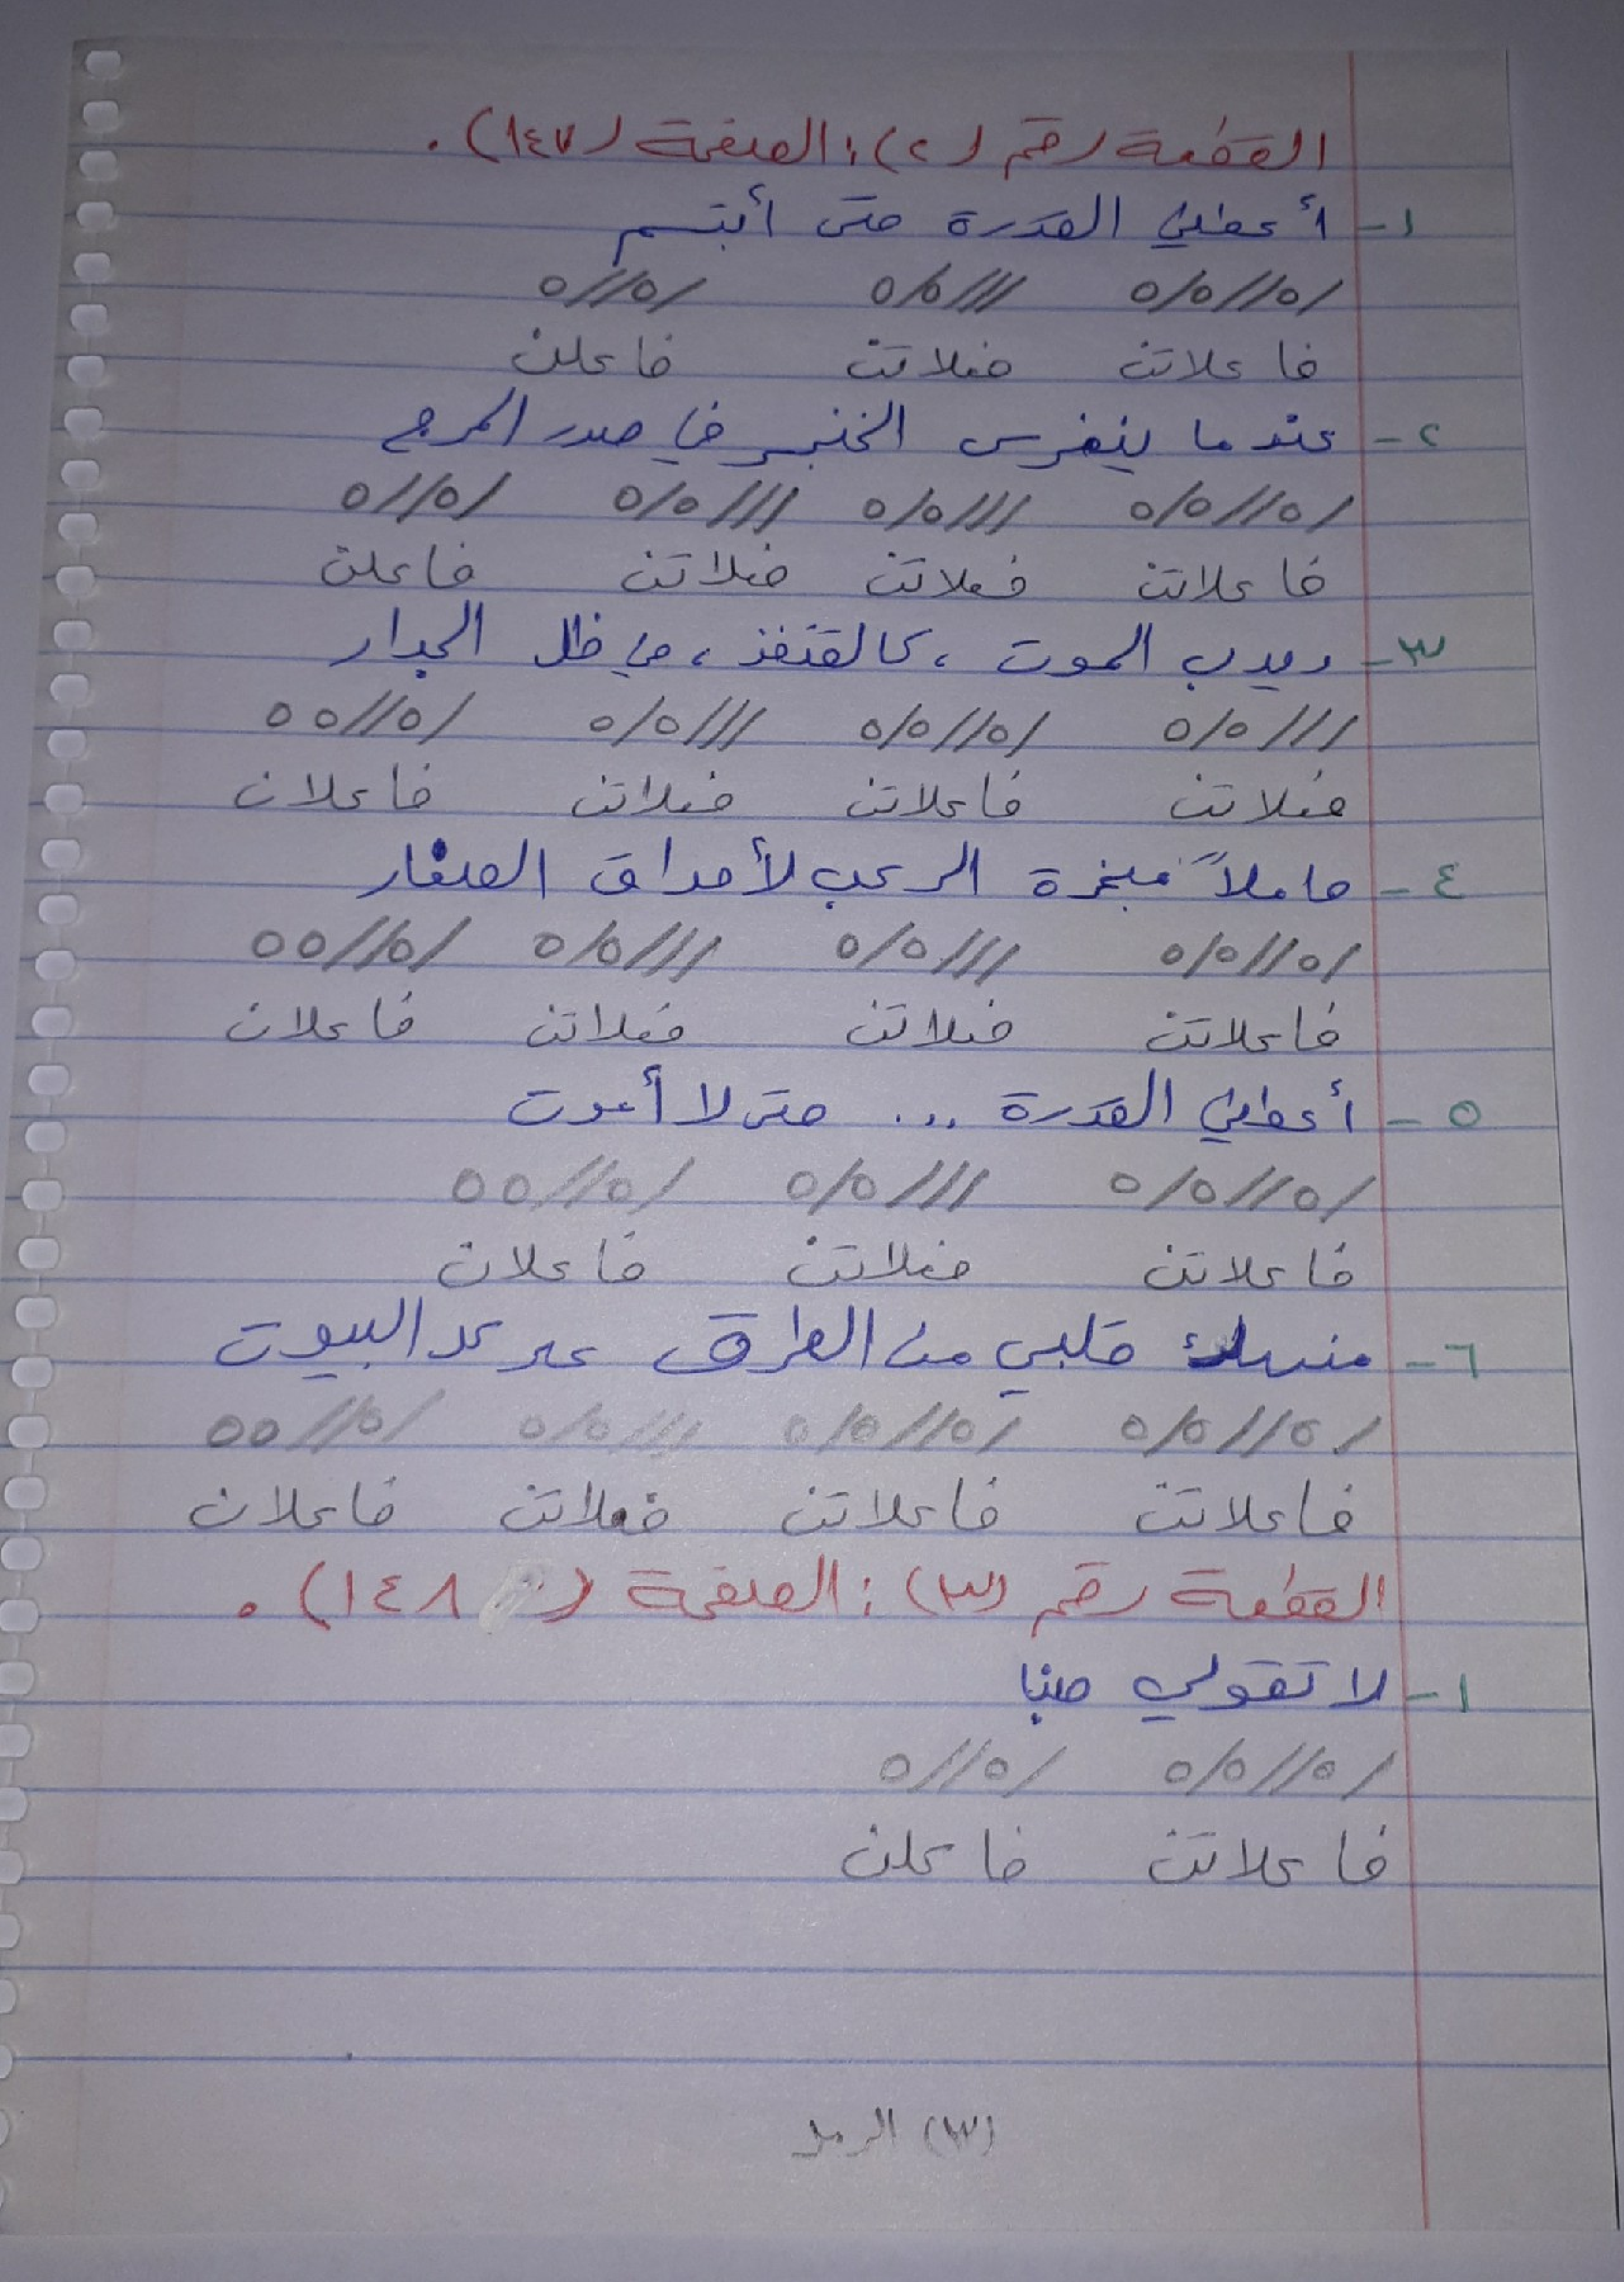 القطعة رقم (٢): الصفحة (١٤٧).
١- أعطني القدرة حتى أبتسم
/٥//٥/٥ ///٥/٥ /٥//٥
فاعلاتن فعلاتن فاعلن
٢- عندما ينغرس الخنجر في صدر المرح
/٥//٥/٥ ///٥/٥ ///٥/٥ /٥//٥
فاعلاتن فعلاتن فعلاتن فاعلن
٣- ويدب الموت ، كالقنفذ ، في ظل الجدار
///٥/٥ /٥//٥/٥ ///٥/٥ /٥//٥٥
فعلاتن فاعلاتن فعلاتن فاعلان
٤- حاملاً مبخرة الرعب لأحداق الصغار
/٥//٥/٥ ///٥/٥ ///٥/٥ /٥//٥٥
فاعلاتن فعلاتن فعلاتن فاعلان
٥- أعطني القدرة ... حتى لا أموت
/٥//٥/٥ ///٥/٥ /٥//٥٥
فاعلاتن فعلاتن فاعلان
٦- منهك قلبي من الطرق على كل البيوت
/٥//٥/٥ /٥//٥/٥ ///٥/٥ /٥//٥٥
فاعلاتن فاعلاتن فعلاتن فاعلان
القطعة رقم (٣): الصفحة (١٤٨).
١- لا تقولي
/٥//٥/٥ /٥//٥
فاعلاتن فاعلن
(٣) الرمل